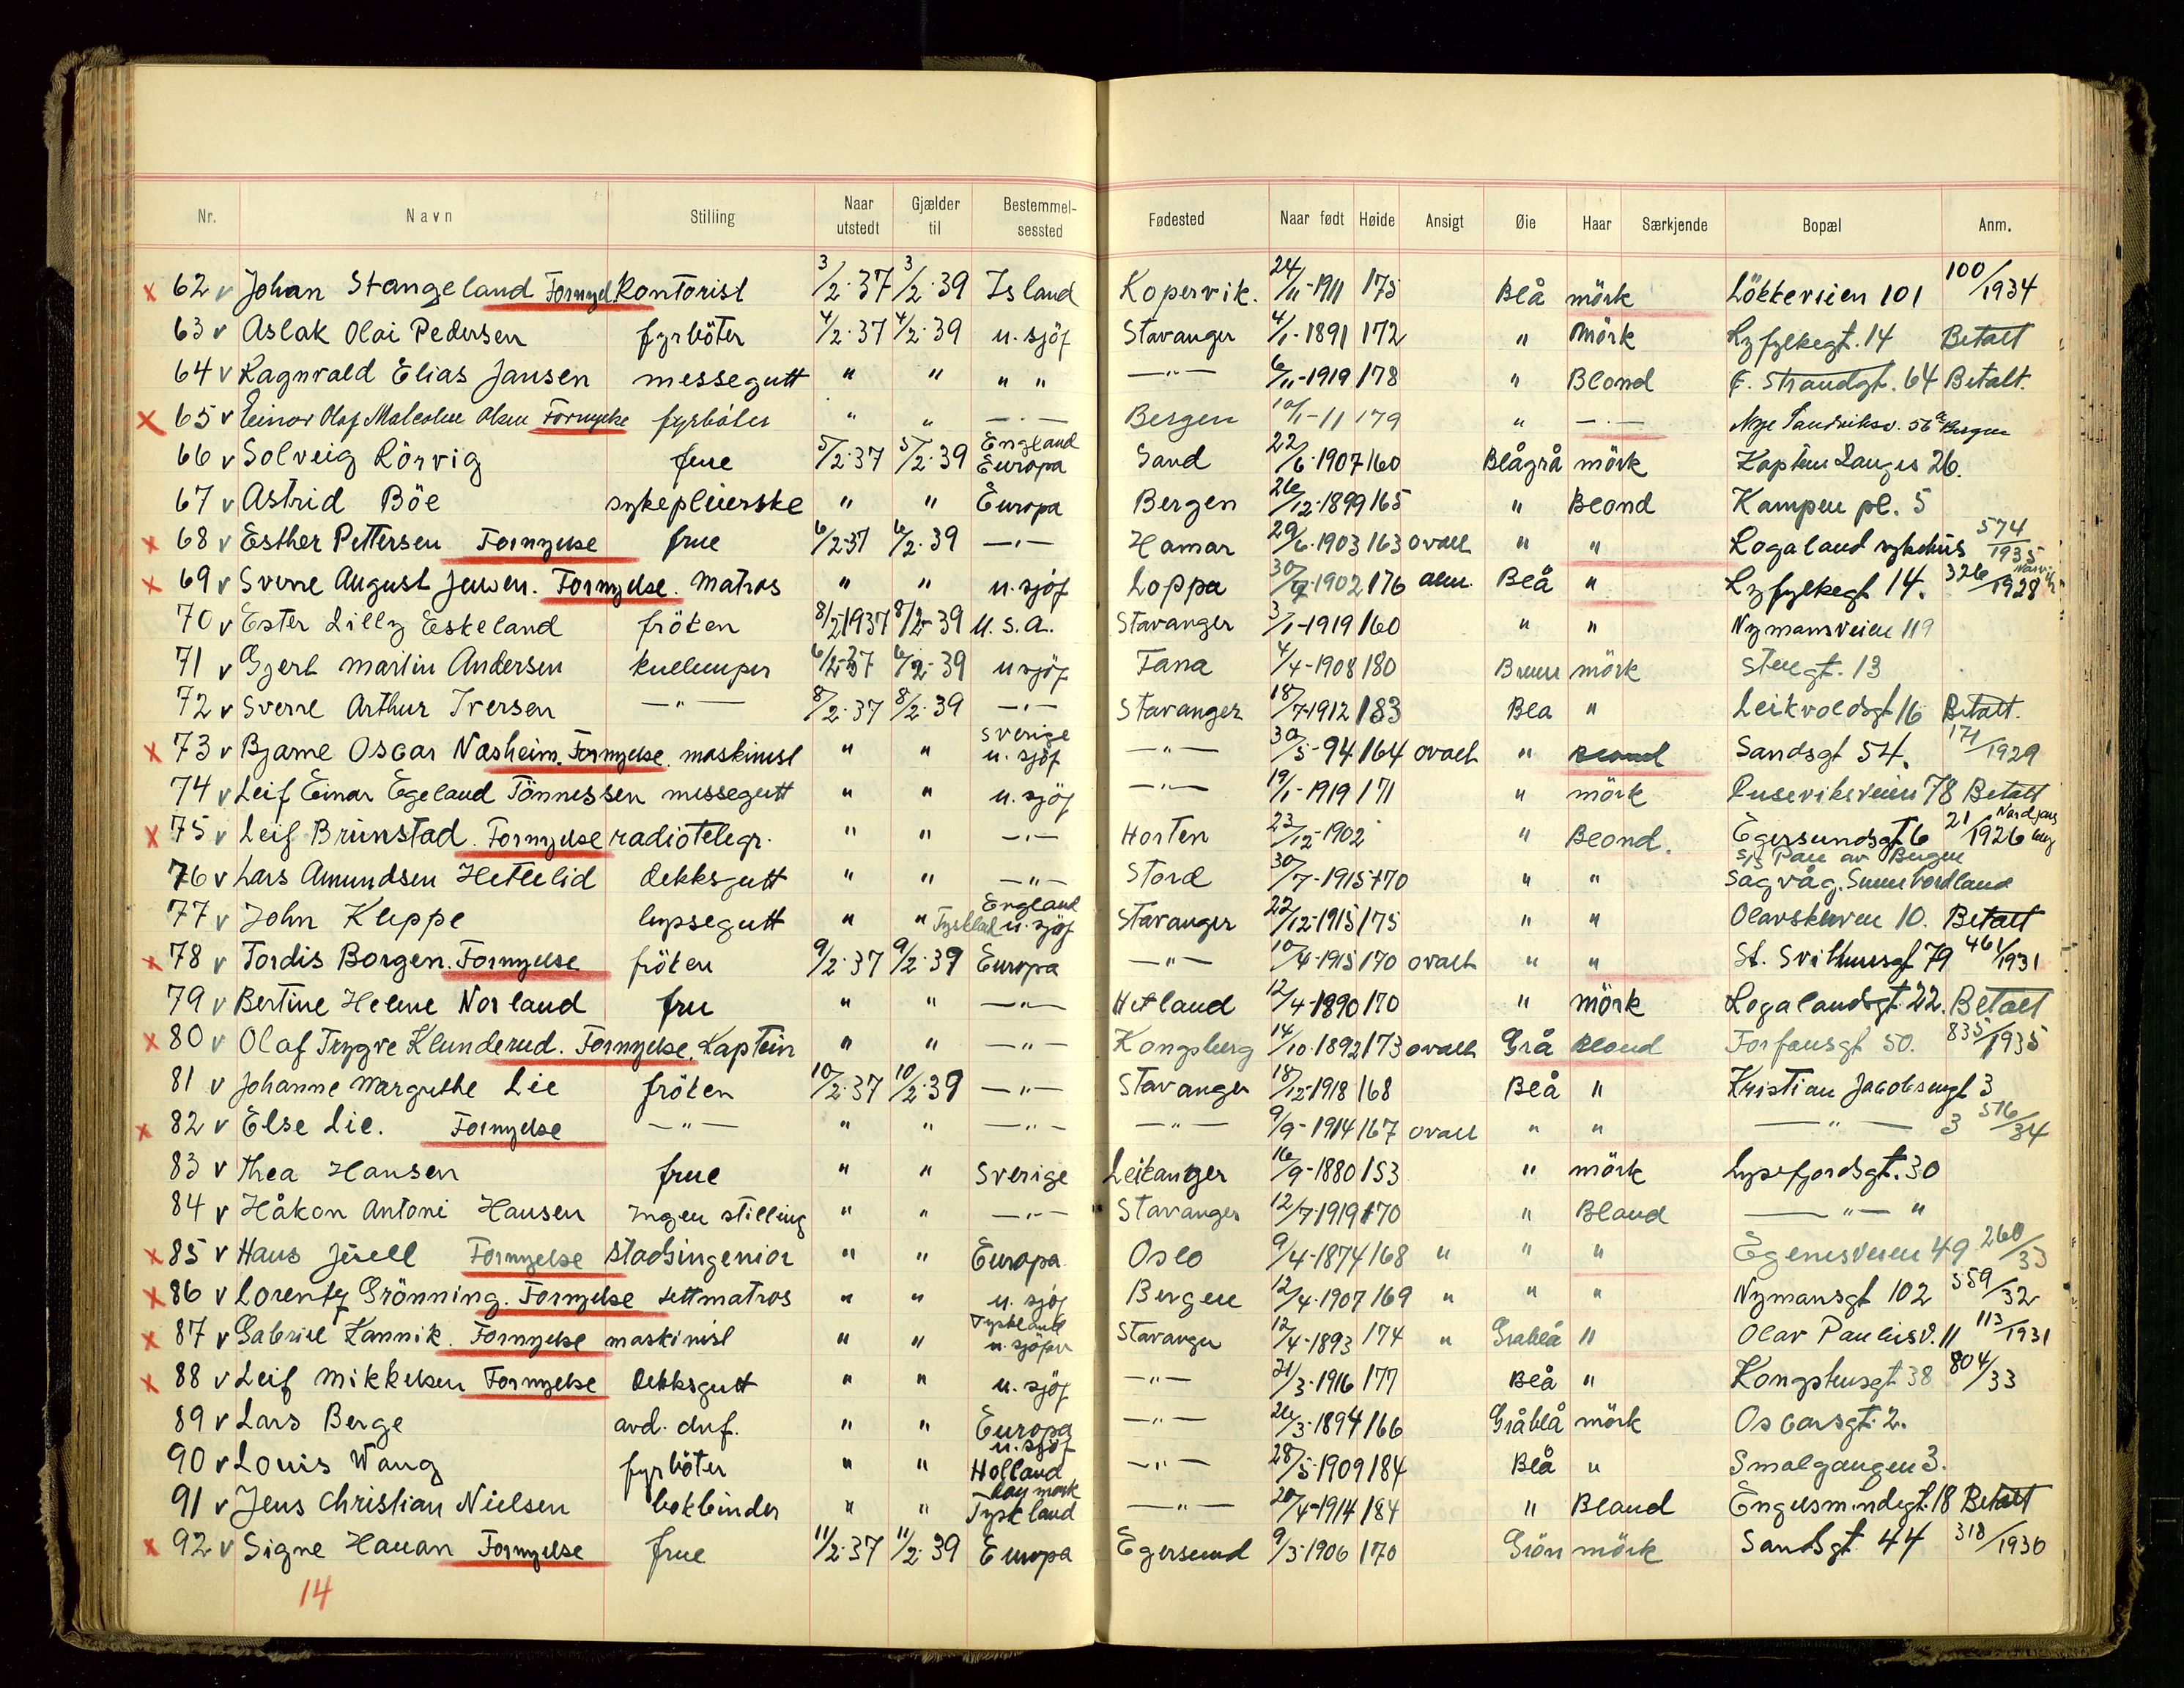 Nr. Navn Stilling Naar utstedt Gjælder til Bestemmel-sessted Fødested Naar født Høide Ansigt Øie Haar Særkjende Bopæl Anm.
x 62 v Johan Stangeland Fornyel. Kontorist 3/2-37 3/2-39 Island Kopervik. 24/11-1911 175 Blå mörk Lökkeveien 101 100/1934
63 v Aslak Olai Pedersen fyrböter 4/2-37 4/2-39 u. sjöf Stavanger 4/1-1891 172 " mörk Ryfylkegt. 14 Betalt
64 v Ragnvald Elias Jansen messegutt " " " " —"— 6/11-1919 178 " Blond Ö. Strandgt. 64 Betalt.
x 65 v Einar Olaf Malcolm Olsen Fornyelse fyrböter " " —"— Bergen 10/1-11 179 " —"— Nye Sandviksv. 56a Bergen
66 v Solveig Rörvig frue 5/2-37 5/2-39 England Europa Sand 22/6-1907 160 Blågrå mörk Kaptein Langes 26.
67 v Astrid Böe sykepleierske " " Europa Bergen 26/12-1899 165 " Blond Kampen pl. 5
x 68 v Esther Pettersen Fornyelse frue 6/2-37 6/2-39 —"— Hamar 29/6-1903 163 ovalt " " Rogaland sykehus 574/1935
x 69 v Sverre August Jensen. Fornyelse. Matros " " u. sjöf Loppa 30/9-1902 176 alm. Blå " Ryfylkegt 14. 326/1928 Narvik
70 v Ester Lilly Eskeland fröken 8/2-1937 8/2-39 U.S.A. Stavanger 3/1-1919 160 " " Nymansveien 119
71 v Gjert Martin Andersen kullemper 6/2-37 6/2-39 u sjöf Fana 4/4-1908 180 Brune mörk Stengt. 13
72 v Sverre Arthur Iversen —"— 8/2-37 8/2-39 —"— Stavanger 18/7-1912 183 Blå " Leikvoldsgt 16 Betalt.
x 73 v Bjarne Oscar Næsheim. Fornyelse. maskinist " " Sverige u. sjöf —"— 30/5-94 164 ovalt " Blond Sandsgt 54. 171/1929
74 v Leif Einar Egeland Tönnessen messegutt " " u. sjöf —"— 19/1-1919 171 " mörk Duseviksveien 78 Betalt
x 75 v Leif Brünstad. Fornyelse radiotelegr. " " —"— Horten 23/12-1902 " Blond. Egersundsgt 6 21/1926
76 v Lars Amundsen Hetlelid dekksgutt " " —"— Stord 30/7-1915 170 " " S/S Pan av Bergen Sagvåg. Sunnhordland
77 v John Kleppe lugsegutt " " England Tyskland u. sjöf Stavanger 22/12-1915 175 " " Olavskleven 10. Betalt
x 78 v Tordis Borgen. Fornyelse fröken 9/2-37 9/2-39 Europa —"— 10/4-1915 170 ovalt " " St. Svithunsgt 79 461/1931
79 v Bertine Helene Norland fru " " —"— Hetland 12/4-1890 170 " mörk Rogalandsgt. 22. Betalt
x 80 v Olaf Trygve Klunderud. Fornyelse. Kaptein " " —"— Kongsberg 14/10-1892 173 ovalt Grå Blond Torfæusgt 50. 835/1935
81 v Johanne Margrethe Lie fröken 10/2-37 10/2-39 —"— Stavanger 18/12-1918 168 Blå " Kristian Jacobsensgt 3
x 82 v Else Lie. Fornyelse —"— " " —"— —"— 9/9-1914 167 ovalt " " —"— 3 516/34
83 v Thea Hansen frue " " Sverige Leikanger 16/9-1880 153 " mörk Lysefjordsgt. 30
84 v Håkon Antoni Hansen Ingen stilling " " —"— Stavanger 12/7-1919 170 " Bland —"— "
x 85 v Hans Jüell Fornyelse stadsingeniör " " Europa Oslo 9/4-1874 168 " " " Egenesveien 49 260/33
x 86 v Lorentz Grönning. Fornyelse lettmatros " " u. sjöf Bergen 12/4-1907 169 " " " Nymansgt 102 559/32
x 87 v Gabriel Kannik. Fornyelse maskinist " " Tyskland u. sjöfu Stavanger 12/4-1893 174 " Gråblå " Olav Paulusv. 11 113/1931
x 88 v Leif Mikkelsen Fornyelse Dekksgutt " " u. sjöf —"— 21/3-1916 177 Blå " Kongshusgt 38 804/33
89 v Lars Berge avd. chef. " " Europa —"— 26/3-1894 166 Gråblå mörk Oscarsgt. 2.
90 v Louis Wang fyrböter " " u. sjöf Holland —"— 28/5-1909 184 Blå " Smalgangen 3.
91 v Jens Christian Nielsen bokbinder " " Danmark Tyskland —"— 20/4-1914 184 " Bland Engelsmindegt. 18 Betalt
x 92 v Signe Hauan Fornyelse frue 11/2-37 11/2-39 Europa Egersund 9/3-1906 170 Grön mörk Sandsgt. 44 318/1930
14